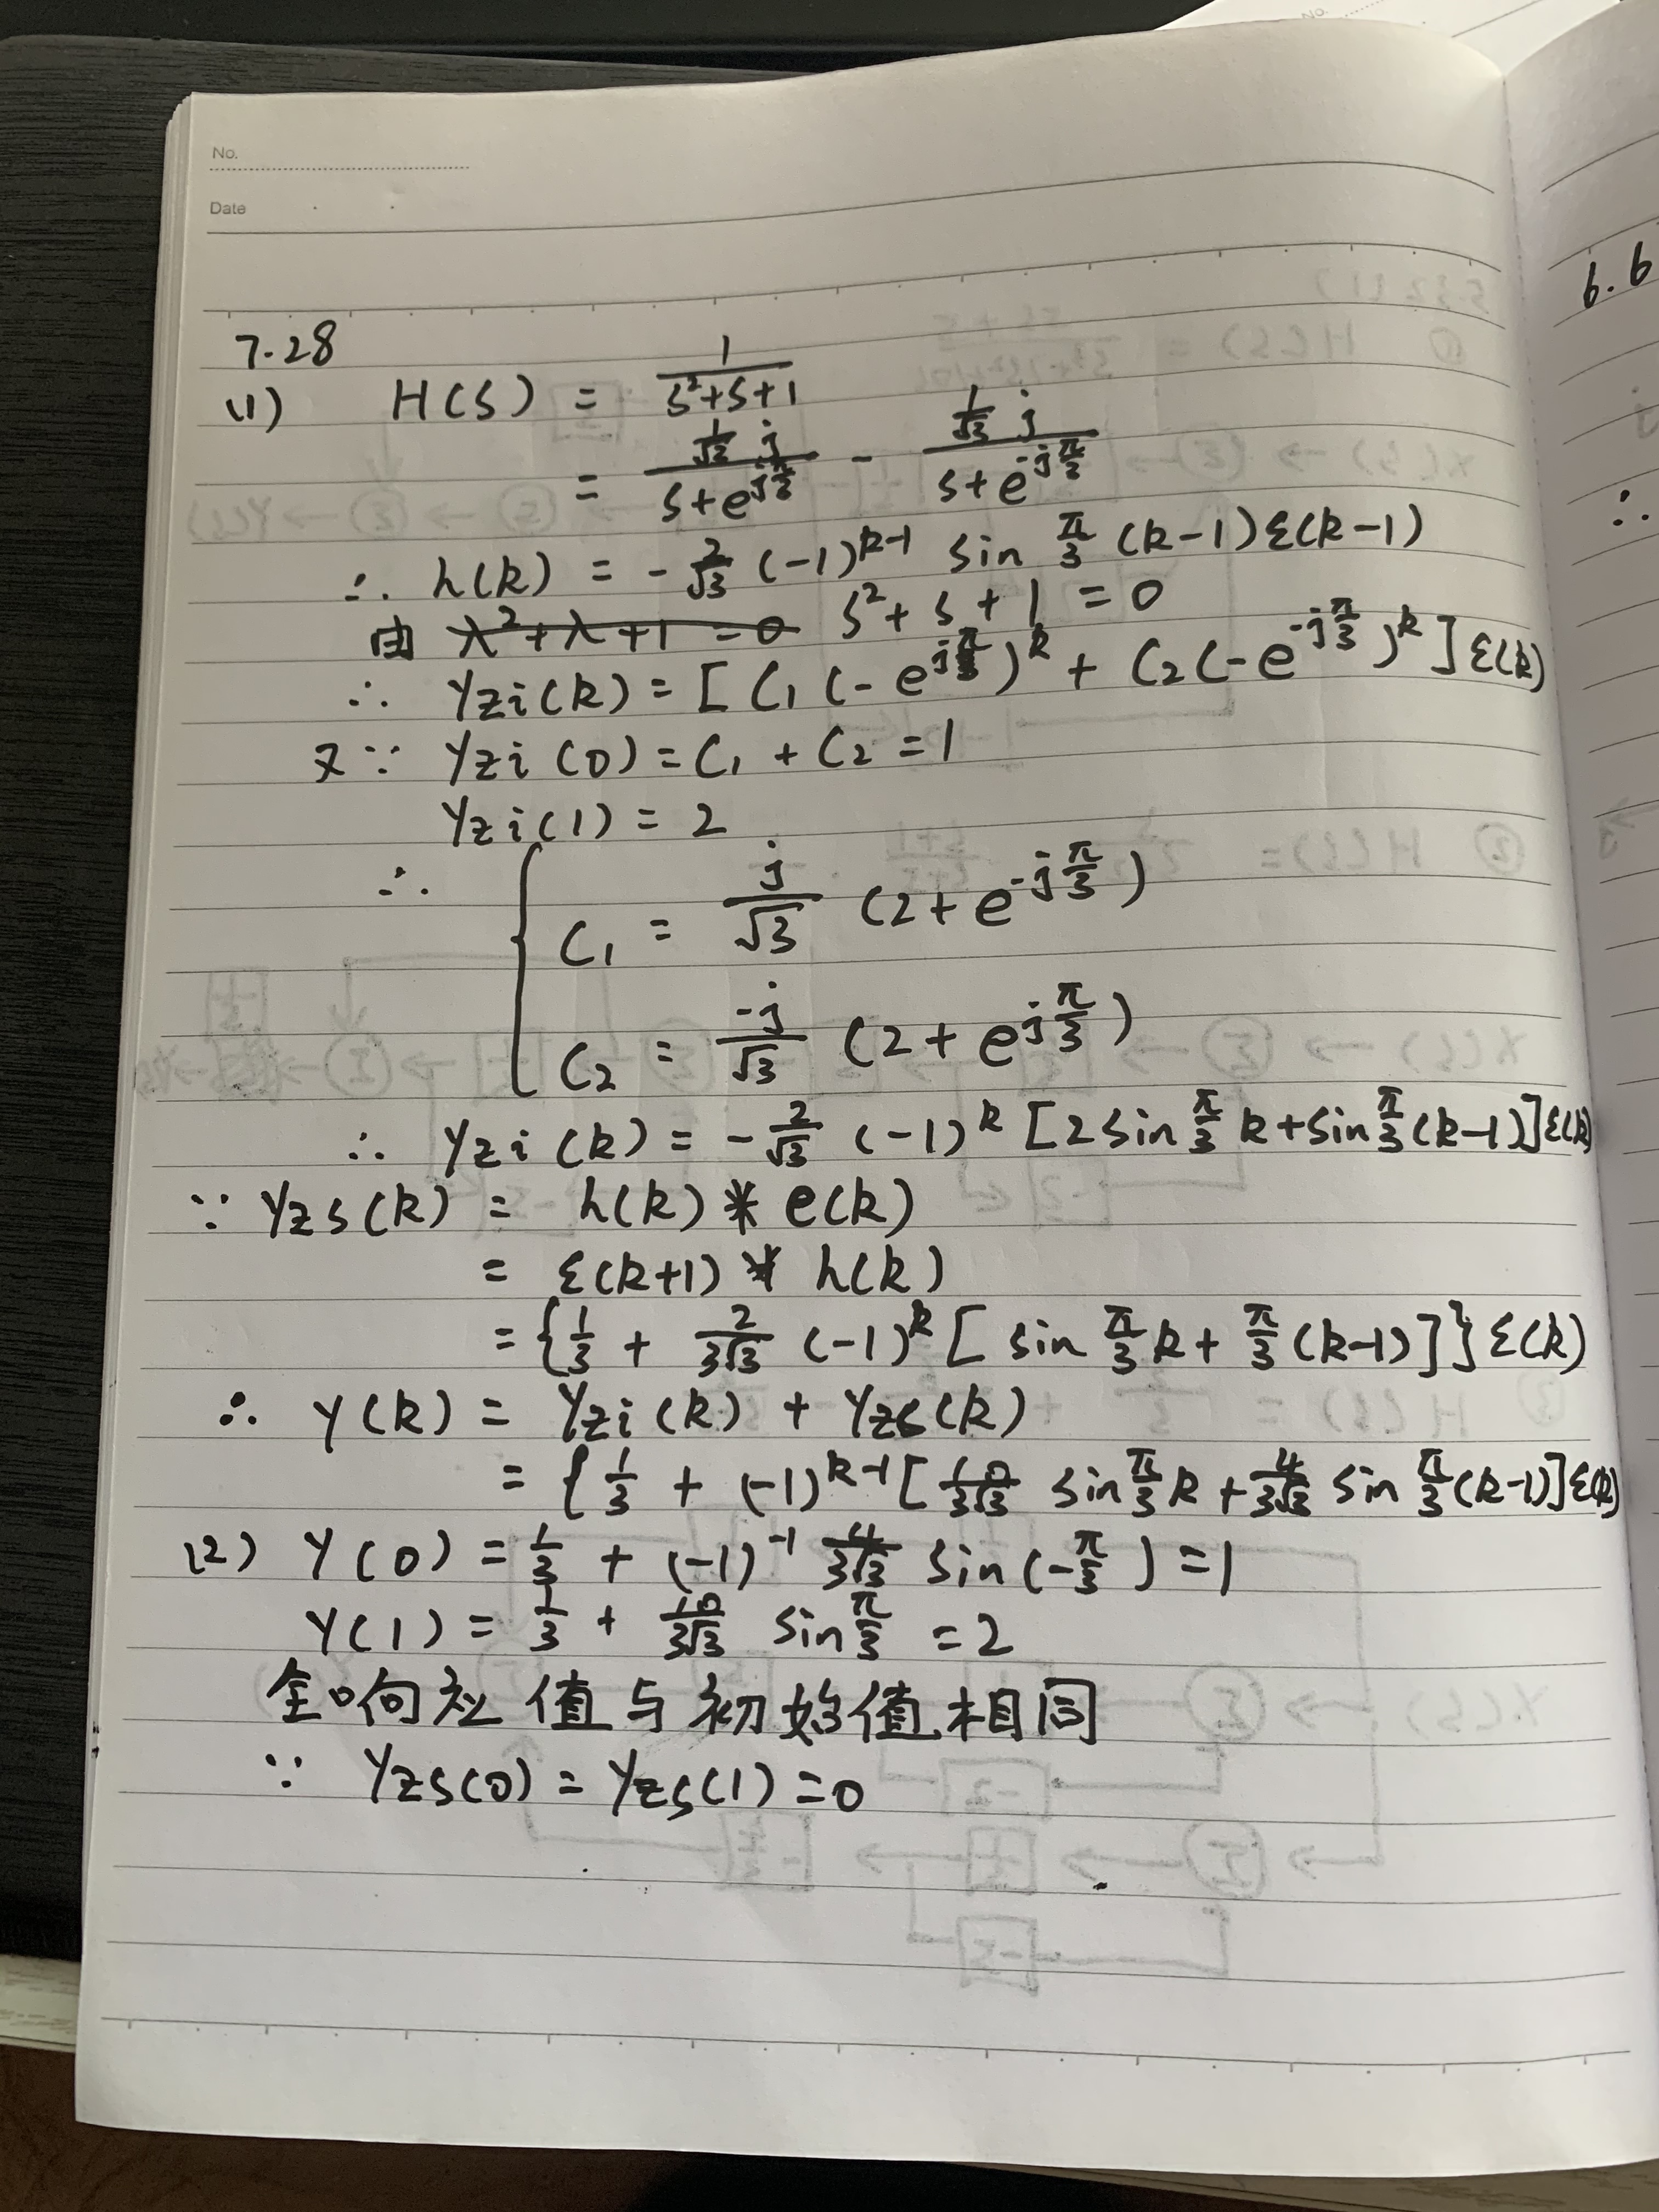 No.
Date
7.28
(1) H(S) = \frac{1}{S^2+S+1}
= \frac{\frac{1}{\sqrt{3}}j}{S+e^{j\frac{π}{3}}} - \frac{\frac{1}{\sqrt{3}}j}{S+e^{-j\frac{π}{3}}}
∴ h(k) = -\frac{2}{\sqrt{3}} (-1)^{k-1} sin \frac{π}{3} (k-1) ε(k-1)
由 ~~λ^2+λ+1=0~~ S^2+S+1=0
∴ Yzi(k) = [C_1 (-e^{j\frac{π}{3}})^k + C_2 (-e^{-j\frac{π}{3}})^k] ε(k)
又∵ Yzi(0) = C_1 + C_2 = 1
Yzi(1) = 2
∴ { C_1 = \frac{j}{\sqrt{3}} (2+e^{-j\frac{π}{3}})
C_2 = \frac{-j}{\sqrt{3}} (2+e^{j\frac{π}{3}})
∴ Yzi(k) = -\frac{2}{\sqrt{3}} (-1)^k [2sin\frac{π}{3}k+sin\frac{π}{3}(k-1)]ε(k)
∵ Yzs(k) = h(k) * e(k)
= ε(k+1) * h(k)
= {\frac{1}{3} + \frac{2}{3\sqrt{3}} (-1)^k [sin \frac{π}{3}k + \frac{π}{3}(k-1)]} ε(k)
∴ Y(k) = Yzi(k) + Yzs(k)
= {\frac{1}{3} + (-1)^{k-1} [\frac{10}{3\sqrt{3}} sin\frac{π}{3}k + \frac{4}{3\sqrt{3}} sin \frac{π}{3}(k-1)] ε(k)
(2) Y(0) = \frac{1}{3} + (-1)^{-1} \frac{4}{3\sqrt{3}} sin(-\frac{π}{3}) = 1
Y(1) = \frac{1}{3} + \frac{10}{3\sqrt{3}} sin\frac{π}{3} = 2
全响应值与初始值相同
∵ Yzs(0) = Yzs(1) = 0
6.6
∴